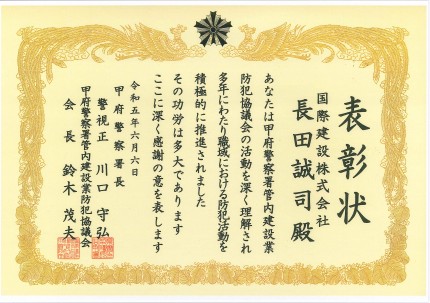 表彰状
国際建設株式会社
長田誠司殿
あなたは甲府警察署管内建設業
防犯協議会の活動を深く理解され
多年にわたり職域における防犯活動を
積極的に推進されました
その功労は多大であります
ここに深く感謝の意を表します
令和五年六月六日
甲府警察署長
警視正 川口守弘
甲府警察署管内建設業防犯協議会
会長 鈴木茂夫